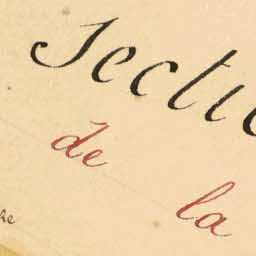 Sectio
de la
he